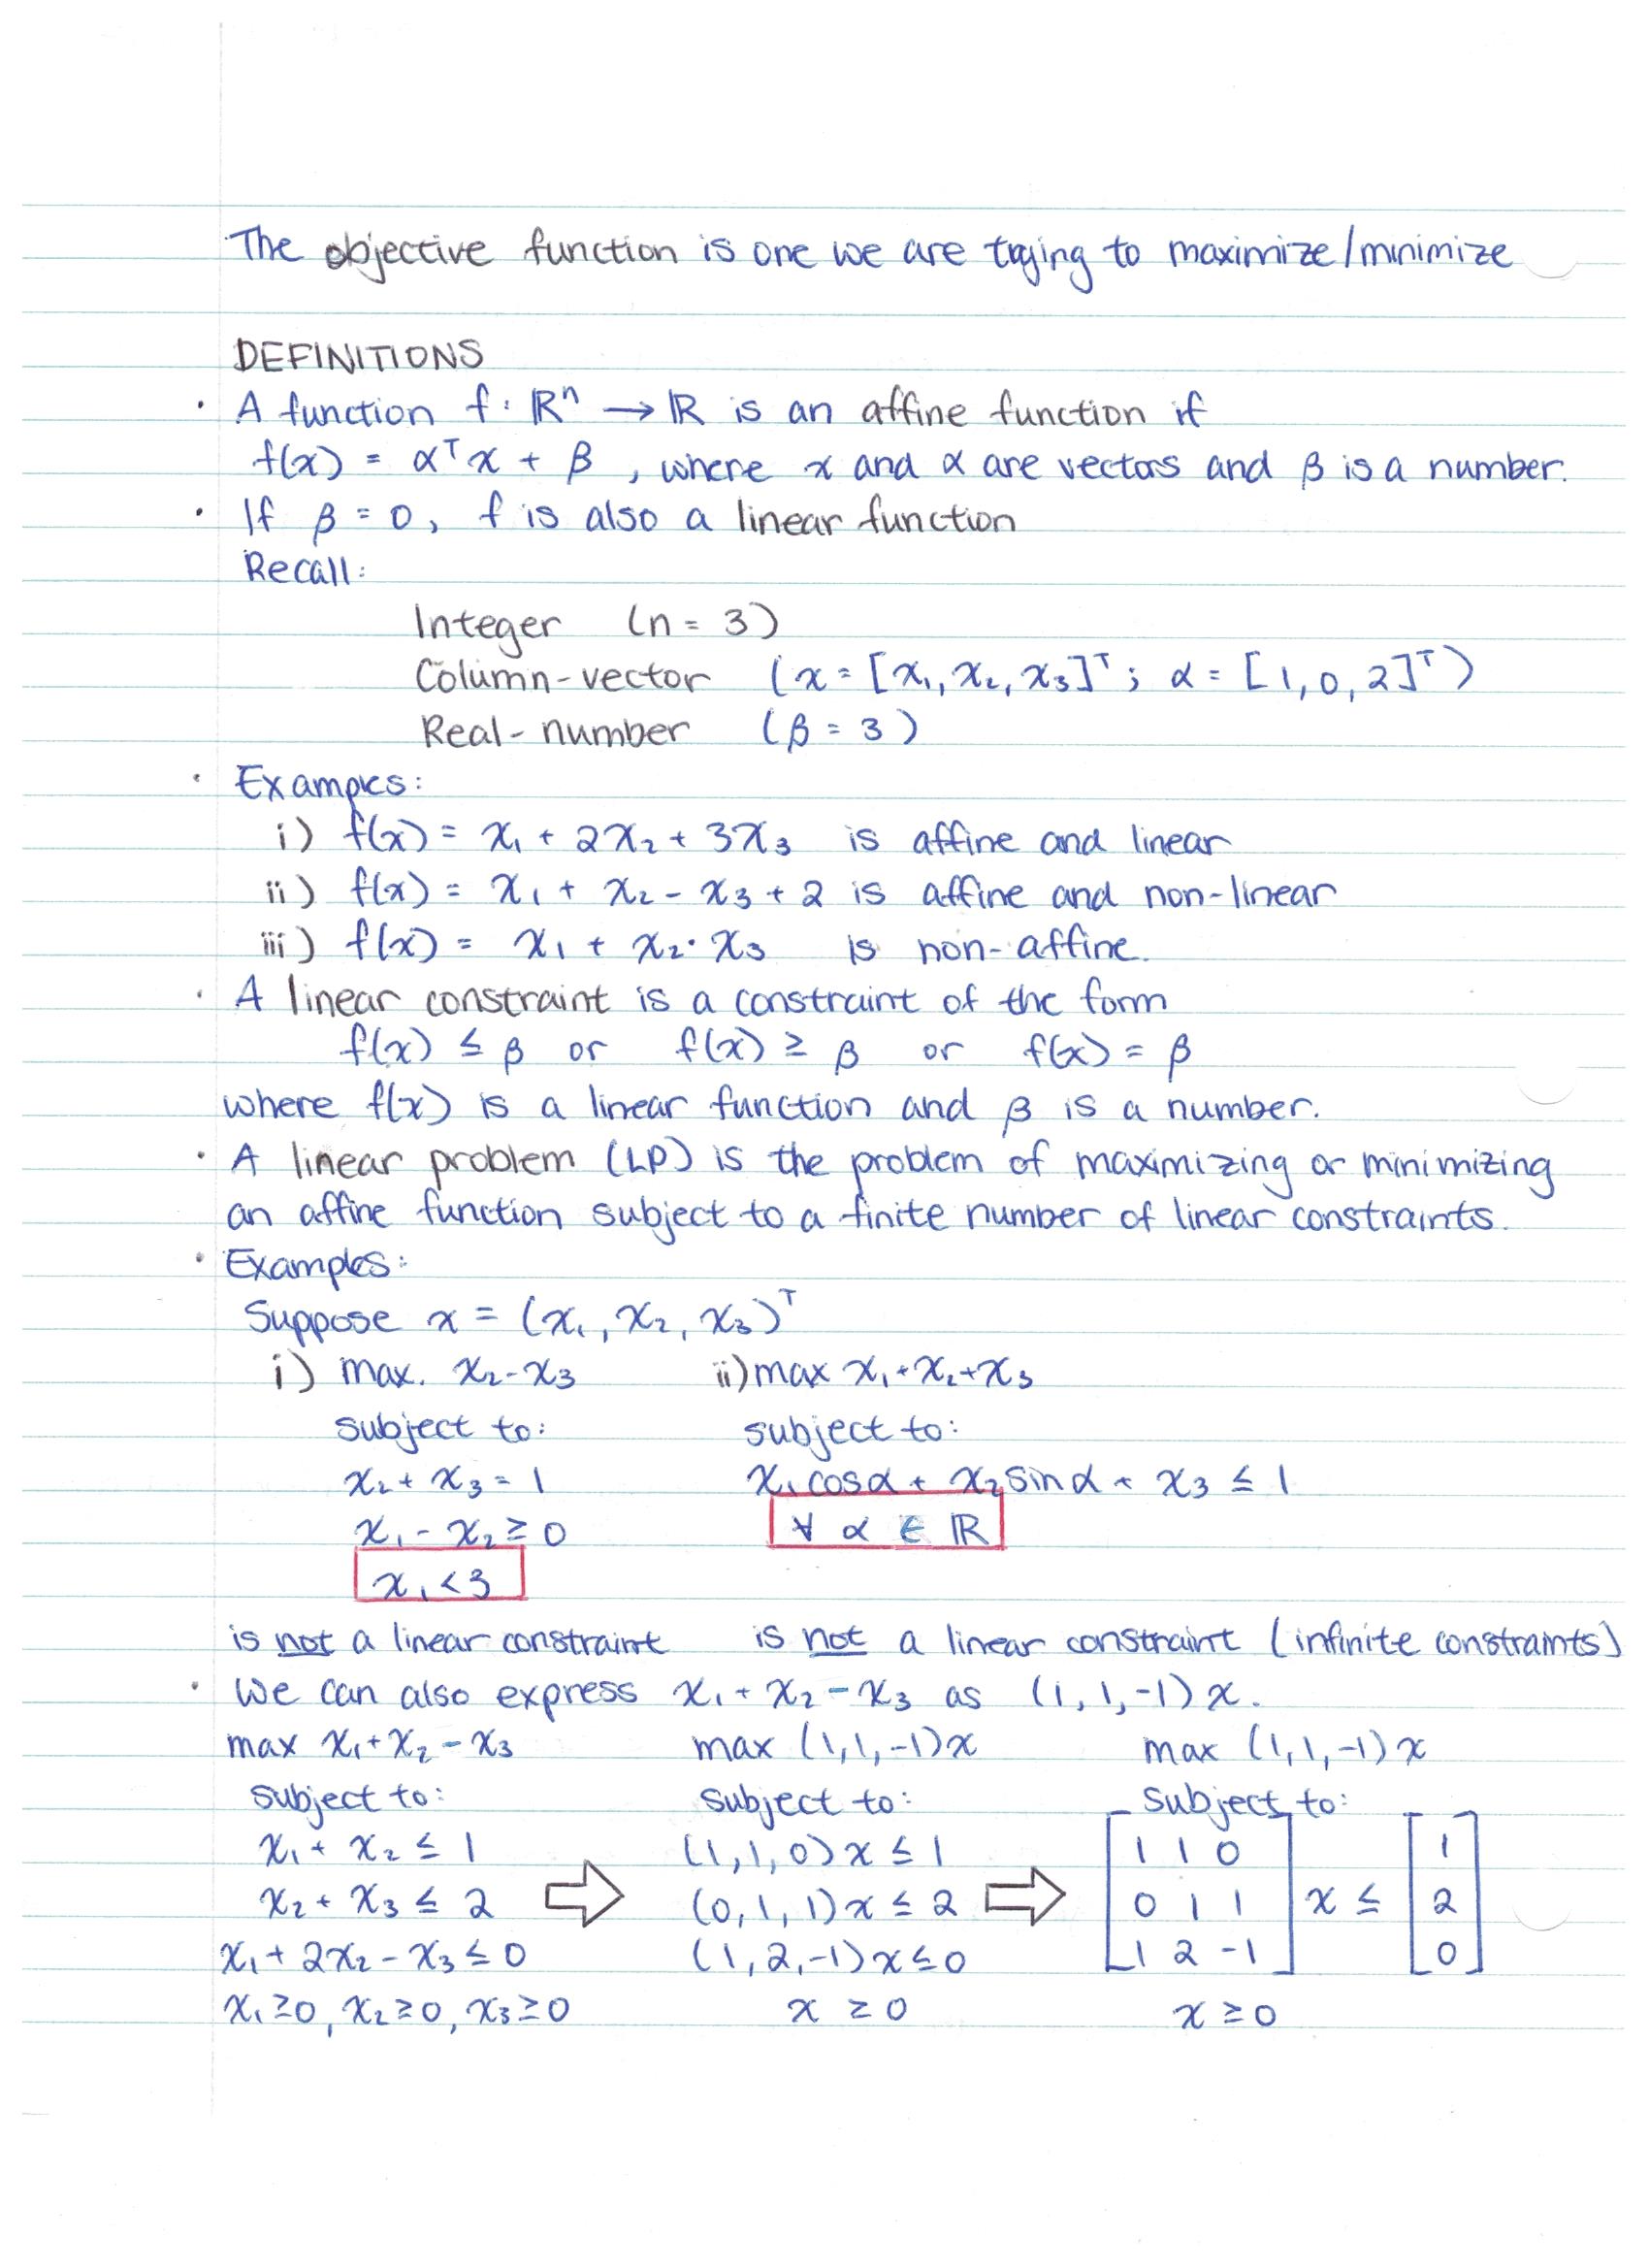 The objective function is one we are trying to maximize/minimize
DEFINITIONS
· A function f: ℝⁿ → ℝ is an affine function if
f(x) = αᵀx + β, where x and α are vectors and β is a number.
· If β = 0, f is also a linear function
Recall:
Integer (n = 3)
Column-vector (x = [x₁, x₂, x₃]ᵀ; α = [1, 0, 2]ᵀ)
Real-number (β = 3)
· Examples:
i) f(x) = x₁ + 2x₂ + 3x₃ is affine and linear
ii) f(x) = x₁ + x₂ - x₃ + 2 is affine and non-linear
iii) f(x) = x₁ + x₂·x₃ is non-affine.
· A linear constraint is a constraint of the form
f(x) ≤ β or f(x) ≥ β or f(x) = β
where f(x) is a linear function and β is a number.
· A linear problem (LP) is the problem of maximizing or minimizing
an affine function subject to a finite number of linear constraints.
· Examples:
Suppose x = (x₁, x₂, x₃)ᵀ
i) max. x₂-x₃ ii) max x₁+x₂+x₃
subject to: subject to:
x₂ + x₃ = 1 x₁cosα + x₂sinα + x₃ ≤ 1
x₁ - x₂ ≥ 0 ∀ α ∈ ℝ
x₁ < 3
is not a linear constraint is not a linear constraint (infinite constraints)
· We can also express x₁ + x₂ - x₃ as (1, 1, -1)x.
max x₁+x₂-x₃ max (1,1,-1)x max (1,1,-1)x
subject to: subject to: subject to:
x₁ + x₂ ≤ 1 (1,1,0)x ≤ 1 1 1 0 1
x₂ + x₃ ≤ 2 ⇨ (0,1,1)x ≤ 2 ⇨ 0 1 1 x ≤ 2
x₁ + 2x₂ - x₃ ≤ 0 (1,2,-1)x ≤ 0 1 2 -1 0
x₁≥0, x₂≥0, x₃≥0 x ≥ 0 x ≥ 0